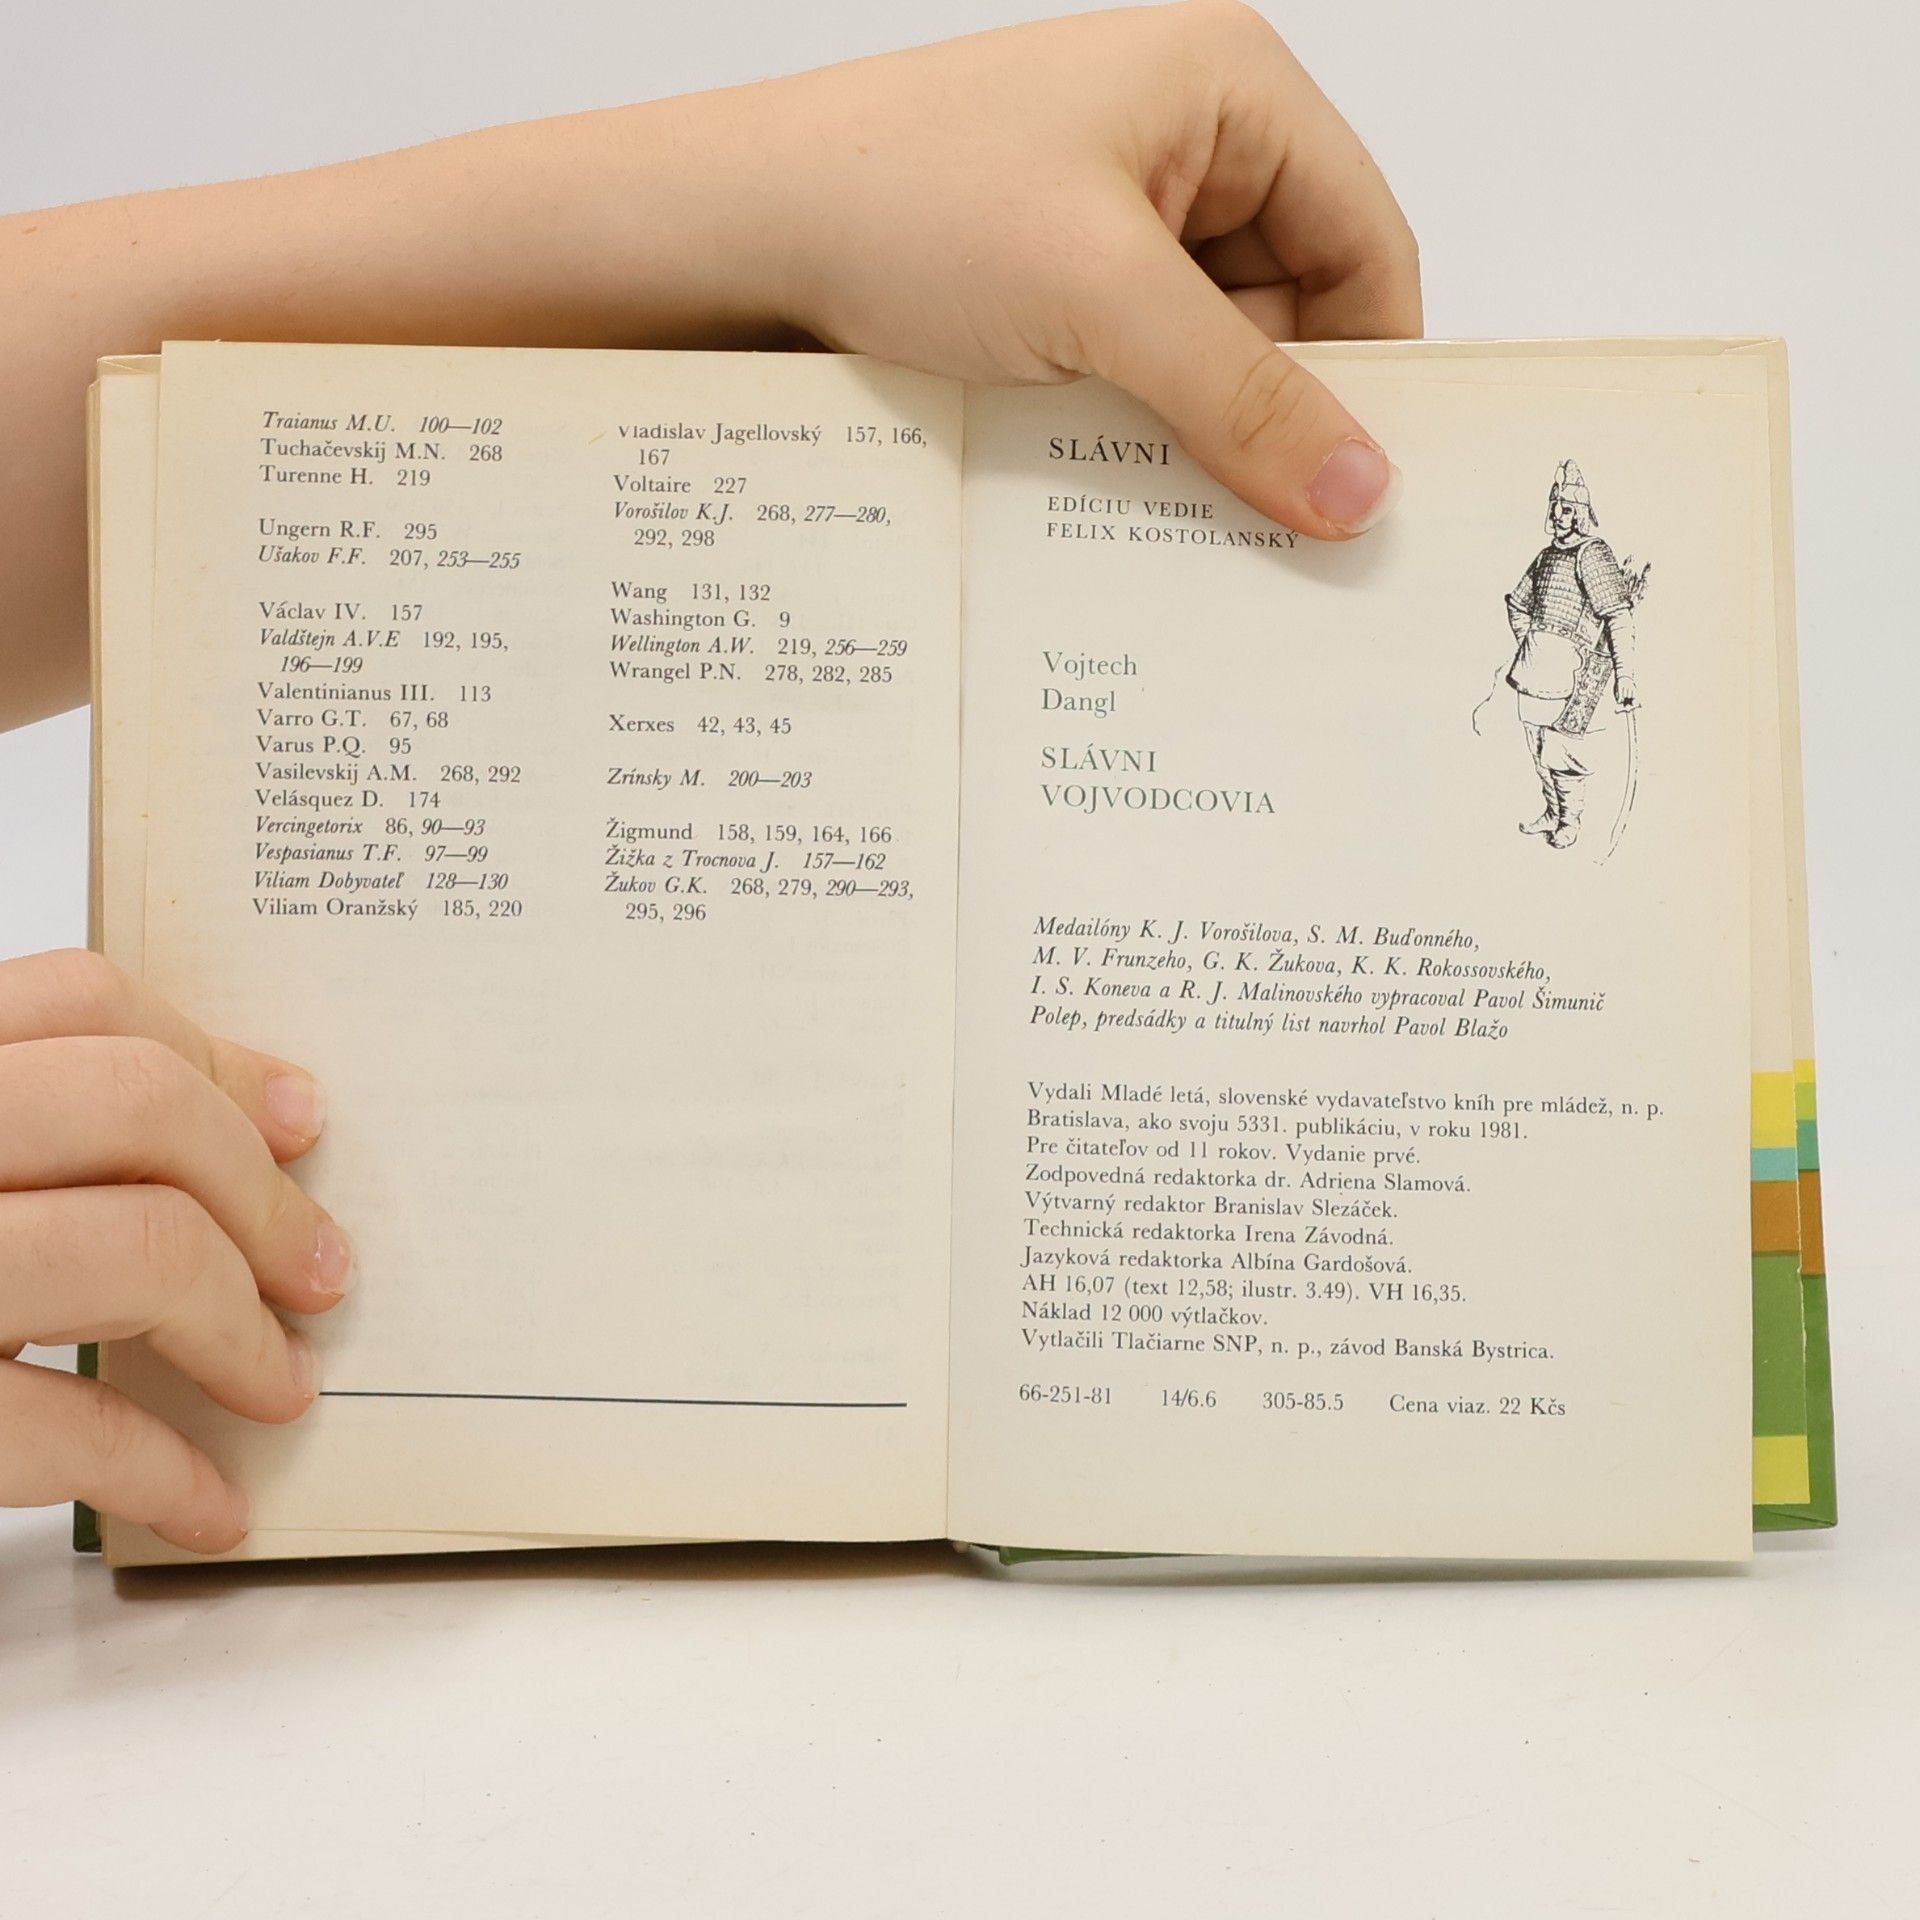 Traianus M.U. 100—102
Tuchačevskij M.N. 268
Turenne H. 219
Ungern R.F. 295
Ušakov F.F. 207, 253—255
Václav IV. 157
Valdštejn A.V.E 192, 195,
196—199
Valentinianus III. 113
Varro G.T. 67, 68
Varus P.Q. 95
Vasilevskij A.M. 268, 292
Velásquez D. 174
Vercingetorix 86, 90—93
Vespasianus T.F. 97—99
Viliam Dobyvateľ 128—130
Viliam Oranžský 185, 220
Vladislav Jagellovský 157, 166,
167
Voltaire 227
Vorošilov K.J. 268, 277—280,
292, 298
Wang 131, 132
Washington G. 9
Wellington A.W. 219, 256—259
Wrangel P.N. 278, 282, 285
Xerxes 42, 43, 45
Zrínsky M. 200—203
Žigmund 158, 159, 164, 166
Žižka z Trocnova J. 157—162
Žukov G.K. 268, 279, 290—293,
295, 296
SLÁVNI
EDÍCIU VEDIE
FELIX KOSTOLANSKÝ
Vojtech
Dangl
SLÁVNI
VOJVODCOVIA
Medailóny K. J. Vorošilova, S. M. Buďonného,
M. V. Frunzeho, G. K. Žukova, K. K. Rokossovského,
I. S. Koneva a R. J. Malinovského vypracoval Pavol Šimunič
Polep, predsádky a titulný list navrhol Pavol Blažo
Vydali Mladé letá, slovenské vydavateľstvo kníh pre mládež, n. p.
Bratislava, ako svoju 5331. publikáciu, v roku 1981.
Pre čitateľov od 11 rokov. Vydanie prvé.
Zodpovedná redaktorka dr. Adriena Slamová.
Výtvarný redaktor Branislav Slezáček.
Technická redaktorka Irena Závodná.
Jazyková redaktorka Albína Gardošová.
AH 16,07 (text 12,58; ilustr. 3.49). VH 16,35.
Náklad 12 000 výtlačkov.
Vytlačili Tlačiarne SNP, n. p., závod Banská Bystrica.
66-251-81 14/6.6 305-85.5 Cena viaz. 22 Kčs